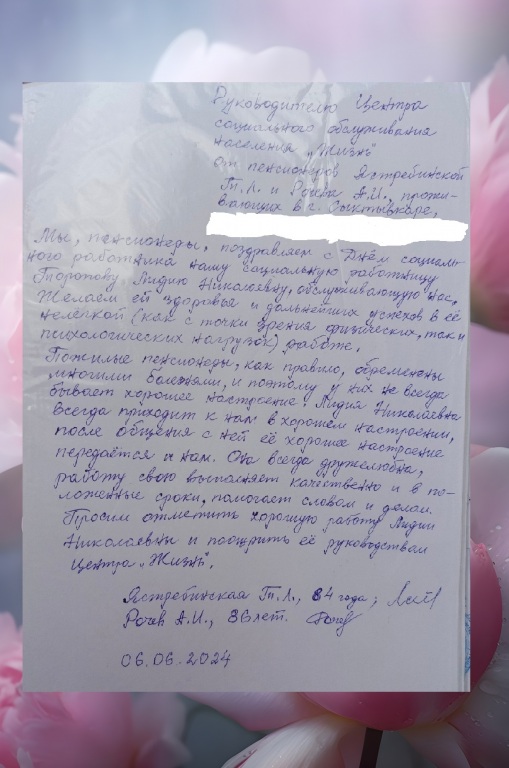 Руководителю Центра
социального обслуживания
населения „Жизнь"
от пенсионеров Ястребинской
Т.Л. и Рочева А.И., прожи-
вающих в г. Сыктывкаре,
Мы, пенсионеры, поздравляем с Днём социаль-
ного работника нашу социальную работницу
Торопову Лидию Николаевну, обслуживающую нас.
Желаем ей здоровья и дальнейших успехов в её
нелёгкой (как с точки зрения физических, так и
психологических нагрузок) работе.
Пожилые пенсионеры, как правило, обременены
многими болезнями, и поэтому у них не всегда
бывает хорошее настроение. Лидия Николаевна
всегда приходит к нам в хорошем настроении,
после общения с ней её хорошее настроение
передаётся и нам. Она всегда дружелюбна,
работу свою выполняет качественно и в по-
ложенные сроки, помогает словом и делом.
Просим отметить хорошую работу Лидии
Николаевны и поощрить её руководством
Центра „Жизнь".
Ястребинская Т.Л., 84 года;
Рочев А.И., 86 лет. Рочев
06.06.2024